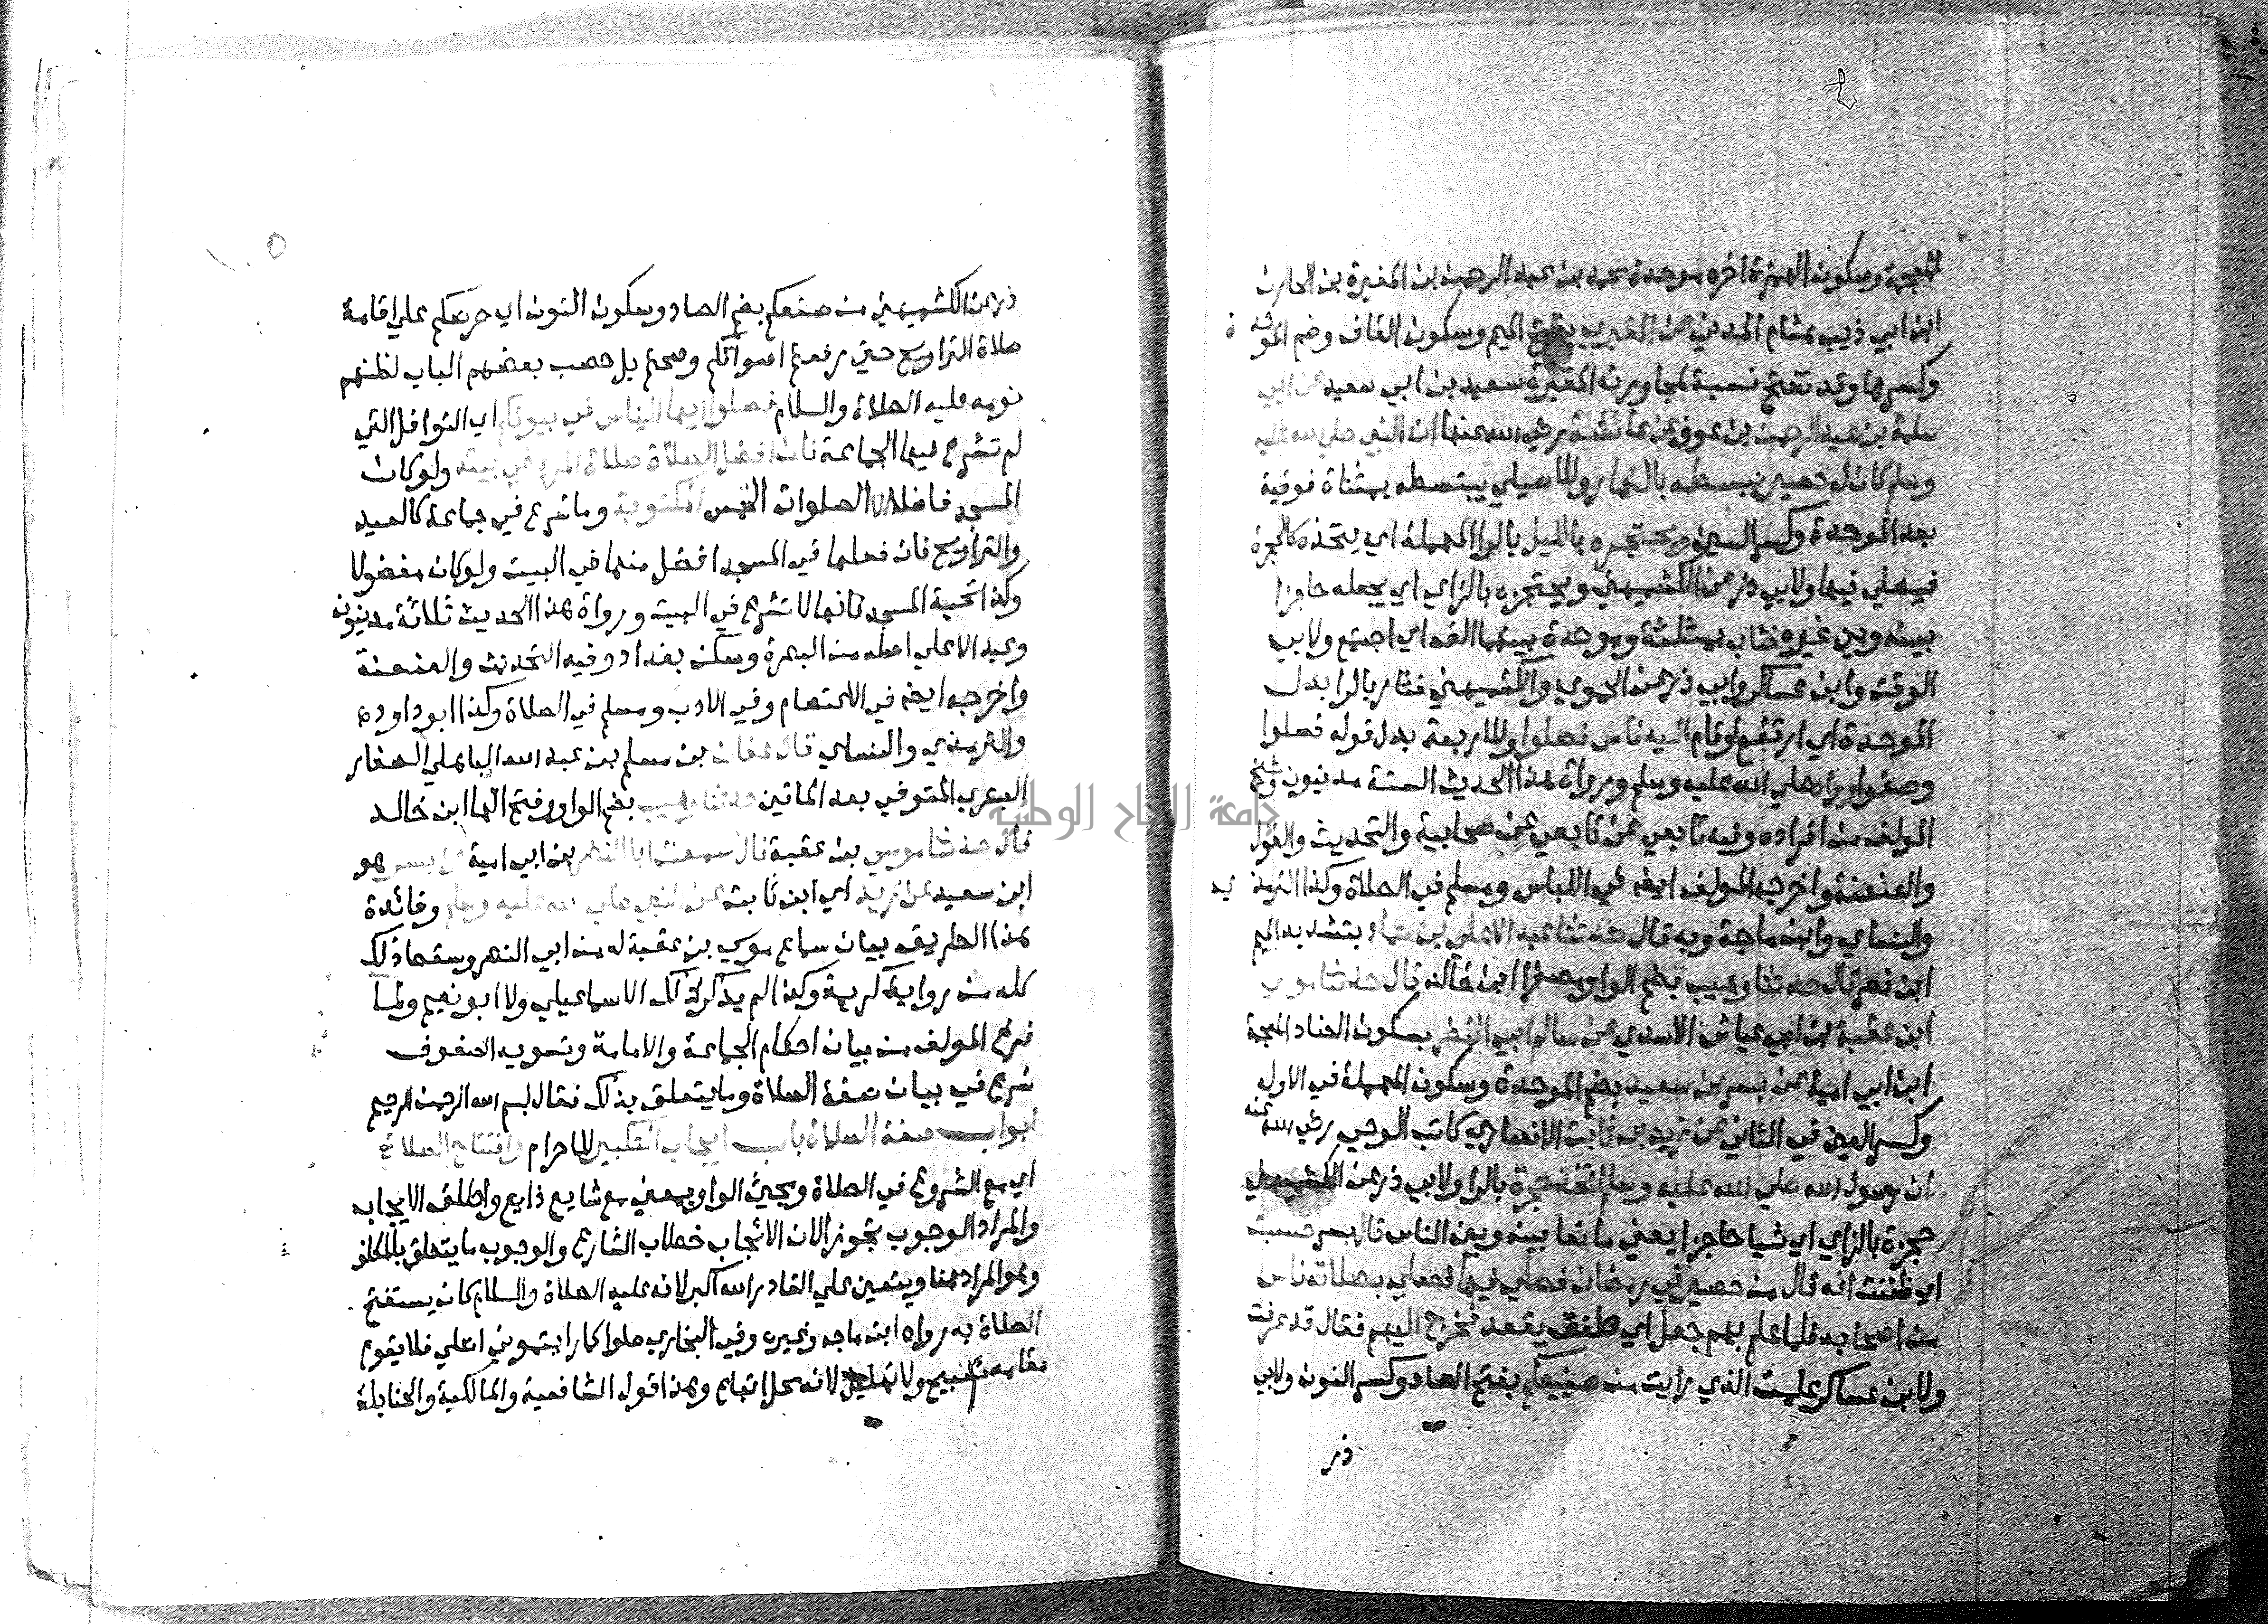 المعجمة وسكون الهمزة اخره موحدة محمد بن عبد الرحمن بن المغيرة بن الحارث
ابن ابي ذيب هشام المدني عن المقبري بفتح الميم وسكون القاف وضم الموحدة
وكسرها وقد تفتح نسبة لمجاورته المقبرة سعيد بن ابي سعيد عن ابي
سلمة بن عبد الرحمن بن عوف عن عائشة رضي الله عنها ان النبي صلي الله عليه
وسلم كان له حصير يبسطه بالنهار وللاصيلي يبتسطه بمثناة فوقية
بعد الموحدة وكسر السين ويحتجره بالليل بالرا المهملة اي يتخذه كالحجرة
فيصلي فيها ولابي ذر عن الكشميهني ويحتجزه بالزاي اي يجعله حاجزا
بينه وبين غيره فثاب بمثلثة وموحدة بينهما الف اي اجتمع ولابي
الوقت وابن عساكر وابي ذر عن الحموي والكشميهني فثار بالرا بدل
الموحدة اي ارتفع او قام اليه ناس فصلوا وللاربعة بدل قوله فصلوا
وصفوا وراه صلي الله عليه وسلم ورواة هذا الحديث الستة مدنيون وشيخ
المولف من افراده وفيه تابعي عن تابعي عن صحابية والتحديث والقول
والعنعنة واخرجه المولف ايضا في اللباس ومسلم في الصلاة وكذا الترمذي
والنساي وابن ماجة وبه قال حدثنا عبد الاعلي بن حماد بتشديد الميم
ابن نصر قال حدثنا وهيب بضم الواو مصغرا ابن خالد قال حدثنا موسي
ابن عقبة بن ابي عياش الاسدي عن سالم ابي النضر بسكون الضاد المعجمة
ابن ابي امية عن بسر بن سعيد بضم الموحدة وسكون المهملة في الاول
وكسر العين في الثاني عن زيد بن ثابت الانصاري كاتب الوحي رضي الله عنه
ان رسول الله صلي الله عليه وسلم اتخذ حجرة بالرا ولابي ذر عن الكشميهني
حجزة بالزاي اي شيا حاجزا يعني مانعا بينه وبين الناس قال بسر حسبت
اي ظننت انه قال من حصير في رمضان فصلي فيها فصلي بصلاته ناس
من اصحابه فلما علم بهم جعل اي طفق يقعد فخرج اليهم فقال قد عرفت
ولابن عساكر علمت الذي رايت من صنيعكم بفتح الصاد وكسر النون ولابي
ذر
ذر عن الكشميهني من صنعكم بضم الصاد وسكون النون اي حرصكم علي اقامة
صلاة التراويح حتي رفعتم اصواتكم وصحتم بل حصب بعضهم الباب لظنهم
نومه عليه الصلاة والسلام فصلوا ايها الناس في بيوتكم اي النوافل التي
لم تشرع فيها الجماعة فان افضل الصلاة صلاة المرء في بيته ولو كان
المسجد فاضلا الا الصلوات الخمس المكتوبة وما شرع في جماعة كالعيد
والتراويح فان فعلها في المسجد افضل منها في البيت ولو كان مفضولا
وكذا تحية المسجد فانها لا تشرع في البيت ورواة هذا الحديث ثلاثة مدنيون
وعبد الاعلي اصله من البصرة وسكن بغداد وفيه التحديث والعنعنة
واخرجه ايضا في الاعتصام وفي الادب ومسلم في الصلاة وكذا ابو داود
والترمذي والنساي قال عفان بن مسلم بن عبد الله الباهلي الصفار
البصري المتوفي بعد الماتين حدثنا وهيب بضم الواو وفتح الها ابن خالد
قال حدثنا موسي بن عقبة قال سمعت ابا النضر بن ابي امية عن بسر هو
ابن سعيد عن زيد اي ابن ثابت عن النبي صلي الله عليه وسلم وفائدة
هذا الطريق بيان سماع موسي بن عقبة له من ابي النضر وسقط ذلك
كله من رواية كريمة وكذا لم يذكر ذلك الاسماعيلي ولا ابو نعيم ولما
فرغ المولف من بيان احكام الجماعة والامامة وتسوية الصفوف
شرع في بيان صفة الصلاة وما يتعلق بذلك فقال بسم الله الرحمن الرحيم
ابواب صفة الصلاة باب ايجاب التكبير للاحرام وافتتاح الصلاة
اي مع الشروع في الصلاة ومجيئ الواو بمعني مع شايع ذايع واطلق الايجاب
والمراد الوجوب تجوزا لان الايجاب خطاب الشارع والوجوب ما يتعلق بالمكلف
وهو المراد هنا ويتعين علي القادر الله اكبر لانه عليه الصلاة والسلام كان يستفتح
الصلاة به رواه ابن ماجه وغيره وفي البخاري صلوا كما رايتموني اصلي فلا يقوم
مقامه تسبيح ولا تهليل لانه محل اتباع وهذا قول الشافعية والمالكية والحنابلة
جامعة النجاح الوطنية